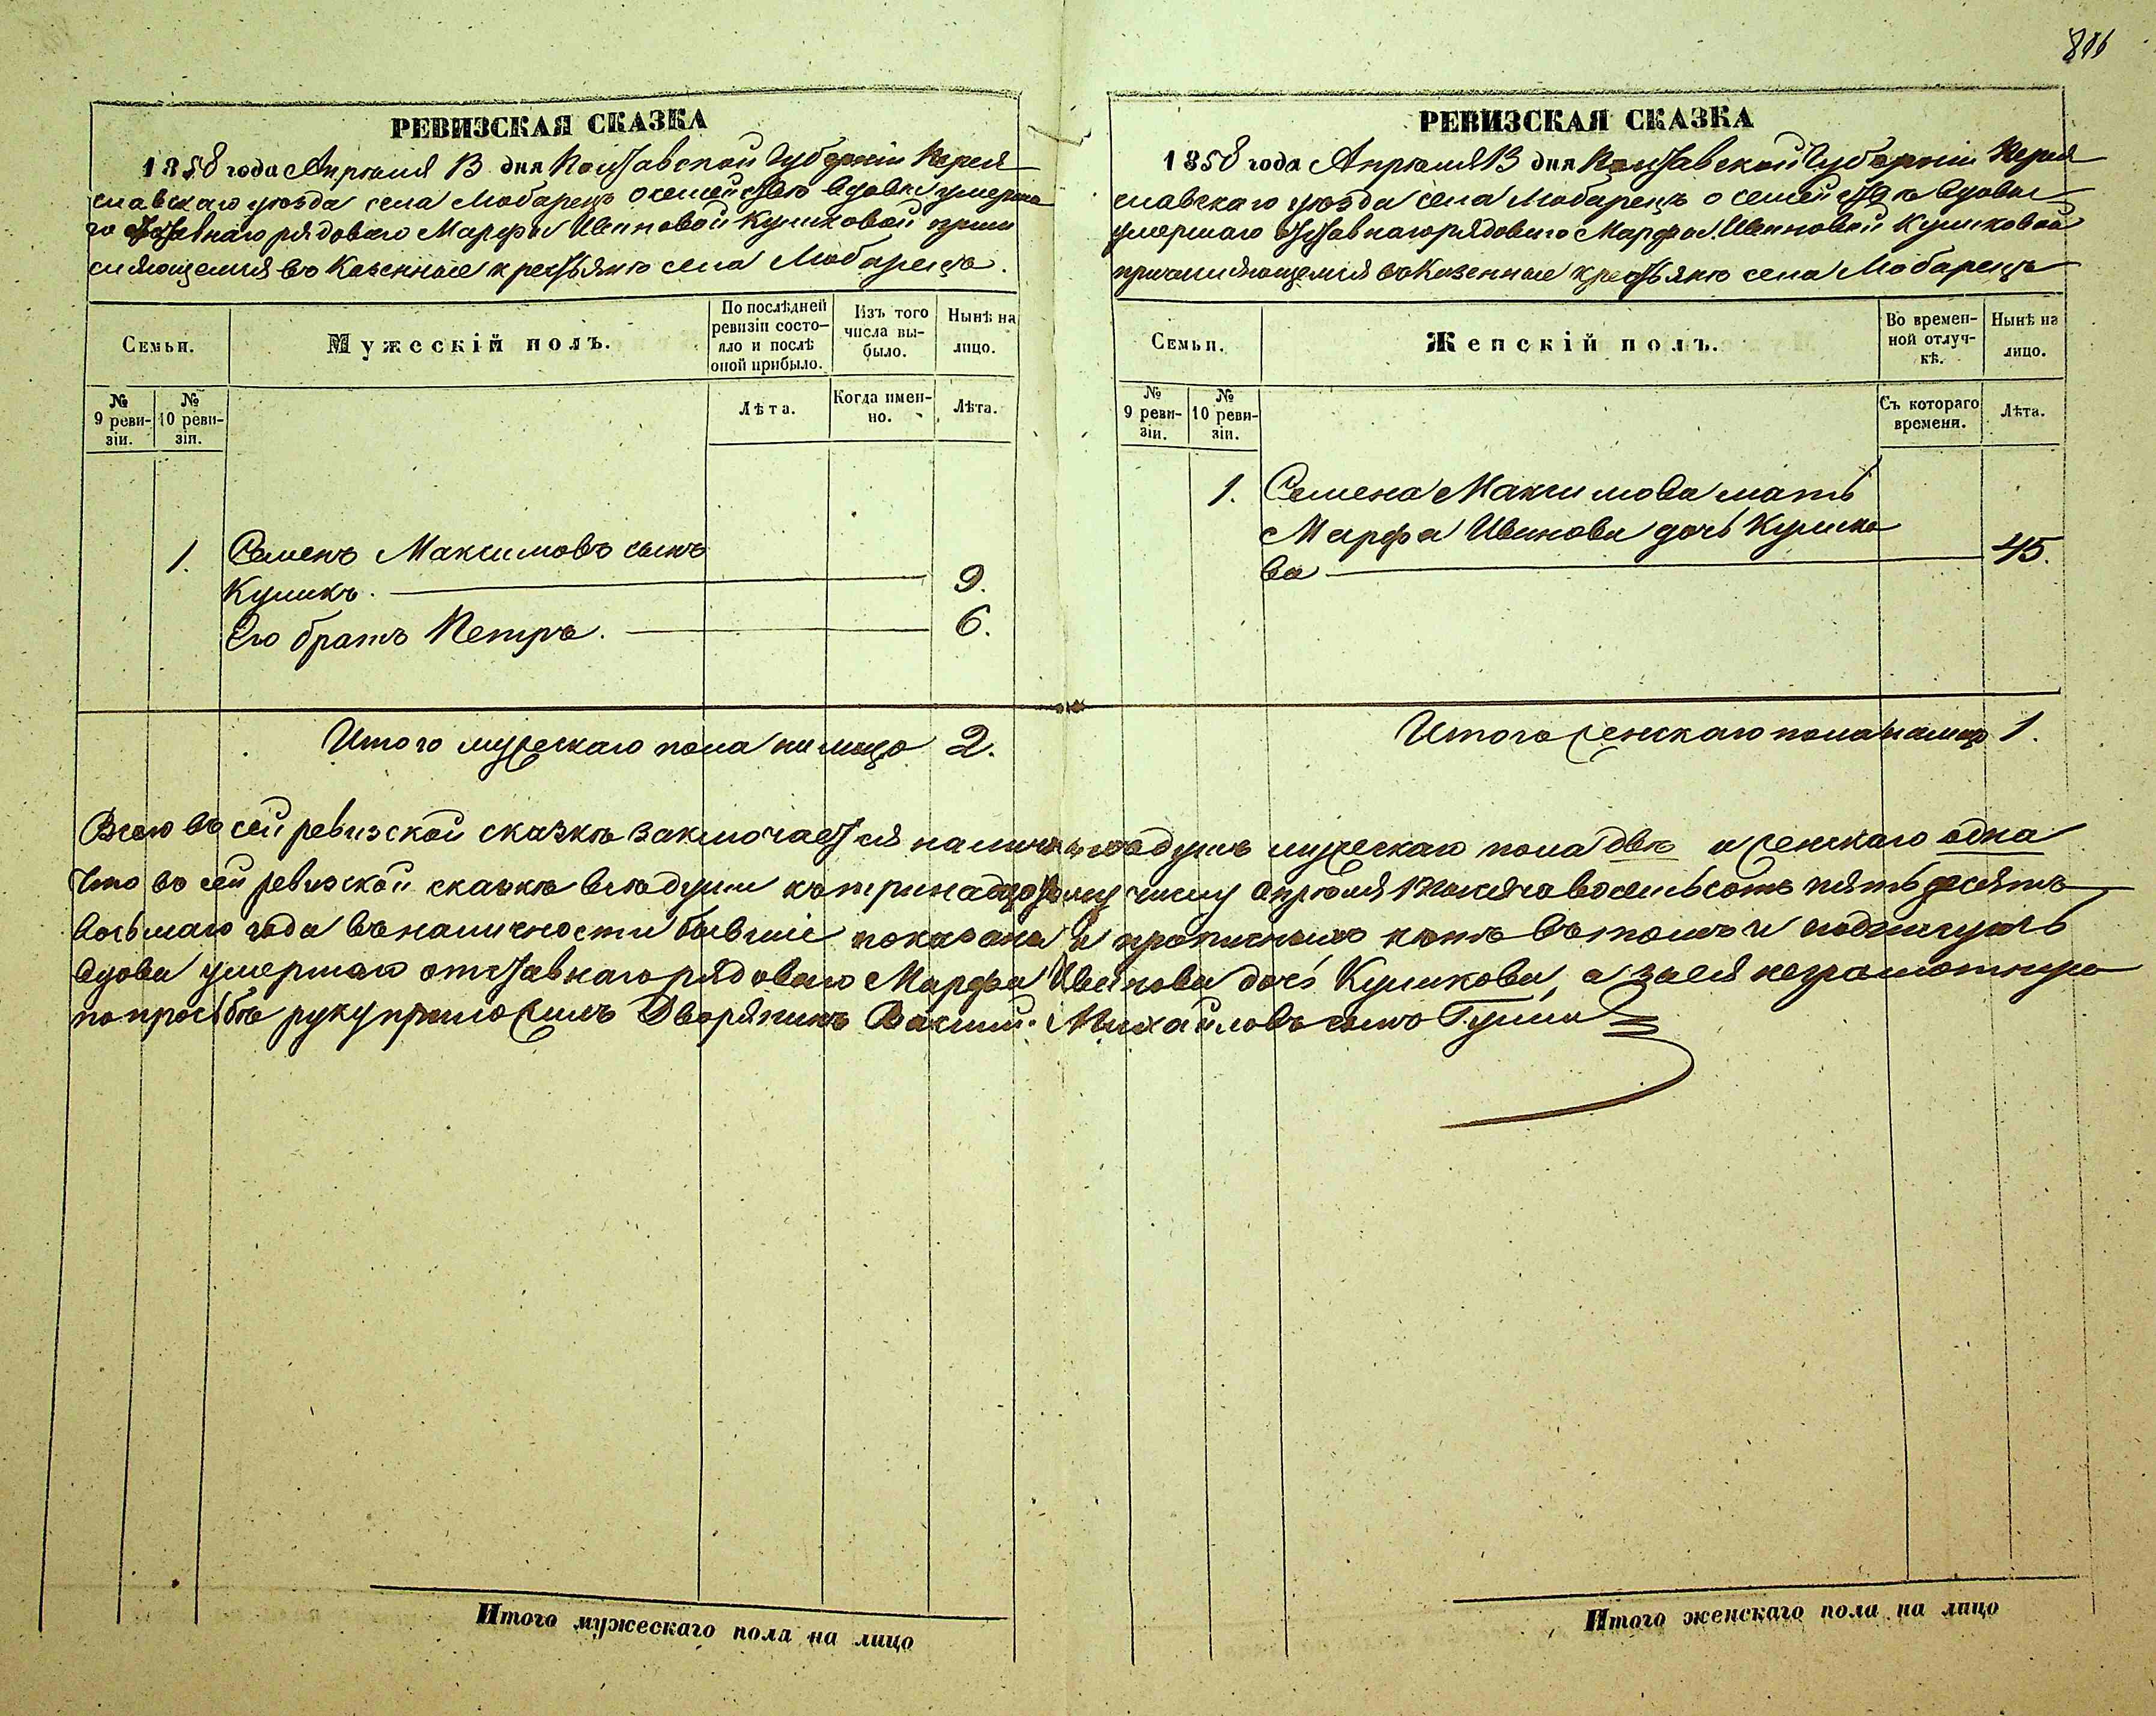 РЕВИЗСКАЯ СКАЗКА
1858 года Апрѣля 13 дня Полтавской Губерніи Перея
славскаго уѣзда села Мобарецъ о семействѣ вдовы умерша
го отставнаго рядоваго Марфы Ивановой Куликовой причи
сляющемся въ Казенные крестьяне села Мобарецъ.
Семьи.
Мужескій полъ.
По послѣдней ревизіи состо-
яло и послѣ оной прибыло.
Изъ того числа вы-
было.
Нынѣ на лицо.
№ 9 реви-
зіи.
№ 10 реви-
зіи.
Лѣта.
Когда имен-
но.
Лѣта.
1. Семенъ Максимовъ сынъ
Куликъ. 9.
Его братъ Петръ. 6.
Итого мужескаго пола на лицо 2.
886
РЕВИЗСКАЯ СКАЗКА
1858 года Апрѣля 13 дня Полтавской Губерніи Перея
славскаго уѣзда села Мобарецъ о семействѣ вдовы
умершаго отставнаго рядоваго Марфы Ивановой Куликовой
причисляющемся въ Казенные крестьяне села Мобарецъ
Семьи.
Женскій полъ.
Во времен-
ной отлуч-
кѣ.
Нынѣ на лицо.
№ 9 реви-
зіи.
№ 10 реви-
зіи.
Съ котораго времени.
Лѣта.
1. Семена Максимова мать
Марфа Иванова дочь Кулико
ва 45.
Итого женскаго пола на лицо 1.
Всего въ сей ревизской сказкѣ заключается наличныхъ душъ мужескаго пола двѣ и женскаго одна
Что въ сей ревизской сказкѣ всѣ души къ тринадцатому числу Апрѣля тысяча восемьсотъ пятьдесятъ
восьмаго года въ наличности бывшіе показаны и прописныхъ нѣтъ въ томъ и подпишусь
вдова умершаго отставнаго рядоваго Марфа Иванова дочь Куликова, а за ея неграмотную
по просьбѣ руку приложилъ Дворянинъ Михайловъ сынъ
Итого мужескаго пола на лицо
Итого женскаго пола на лицо